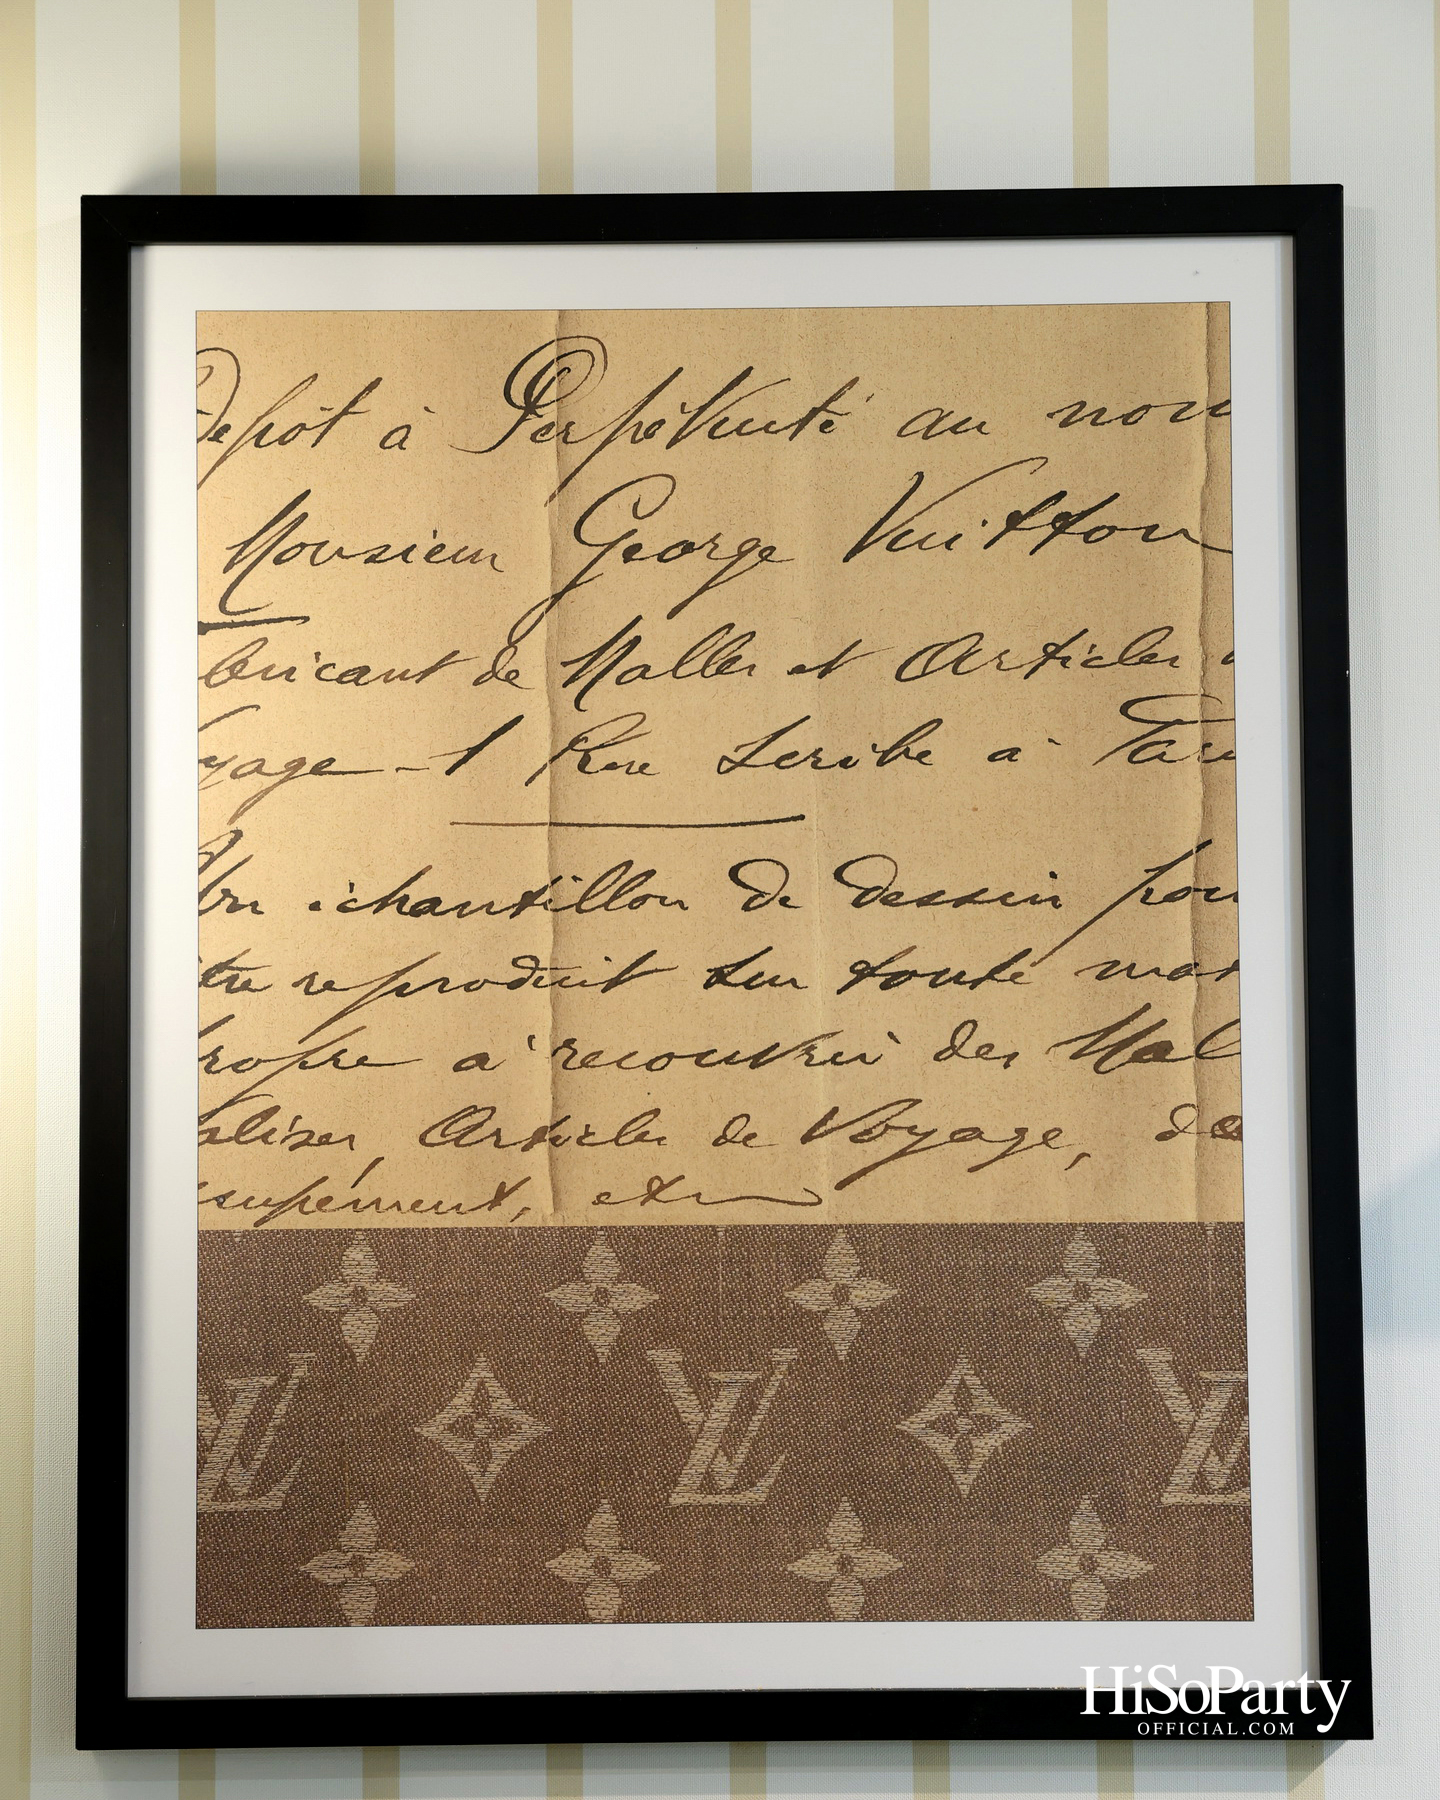 Depôt à Perpétuité au nom
Monsieur George Vuitton
bricant de Malles et Articles
yage - 1 Rue Scribe à Paris
Un échantillon de dessin pour
être reproduit sur toute mat
propre à recouvrir des Mal
alises, Articles de Voyage, de
upément, etc
LV LV LV
HiSoParty
OFFICIAL.COM